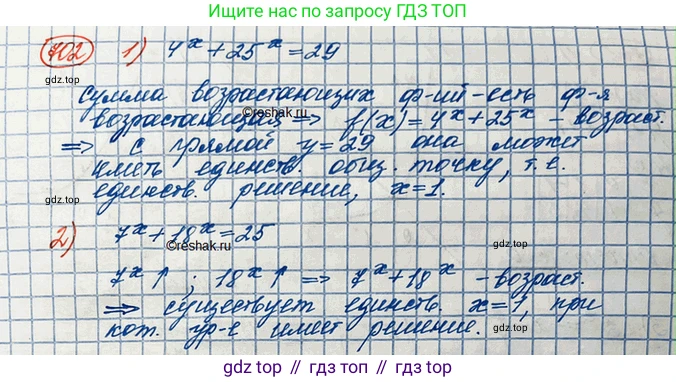 Ищите наши решения по запросу ГДЗ ТОП
702 1) 4^x + 25^x = 29
gdz.top gdz.top
Сумма возрастающих ф-ий - есть ф-я
возрастающая => f(x) = 4^x + 25^x - возраст.
©reshak.ru
=> с прямой y = 29 она может
gdz.top gdz.top
иметь единств. общ. точку, т.е.
единств. решение, x = 1.
2) 7^x + 18^x = 25
©reshak.ru
7^x ↑ ; 18^x ↑ => 7^x + 18^x - возраст.
gdz.top gdz.top
=> существует единств. x = 1, при
кот. ур-е имеет решение.
©reshak.ru
gdz.top // гдз.топ // gdz.top // гдз.топ